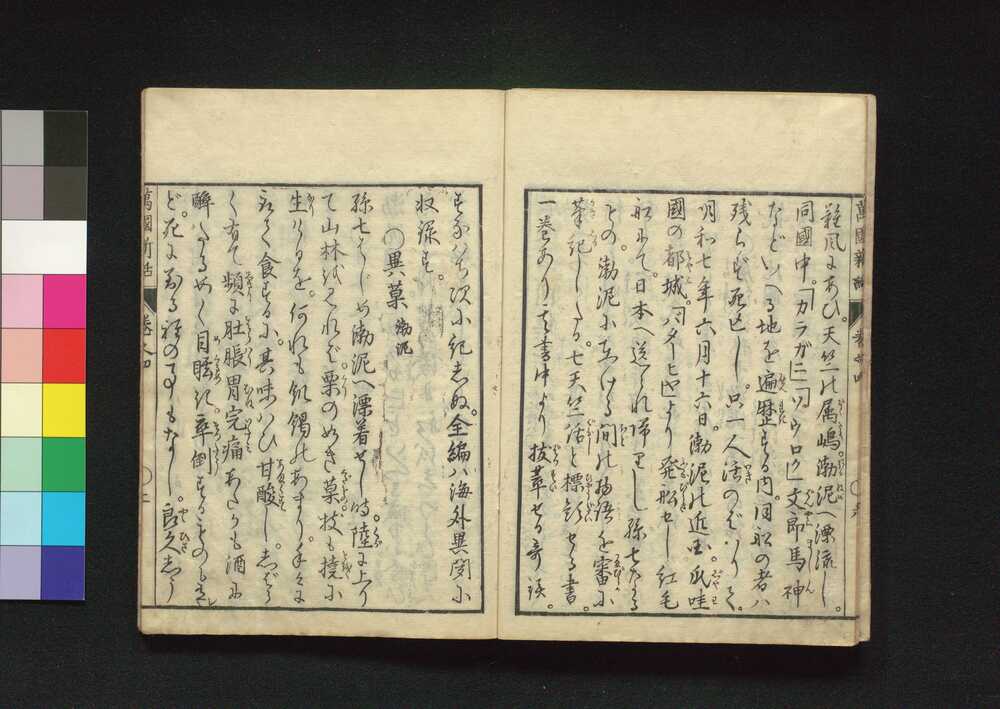 萬國新話 巻之四
難風にあひ。天竺の属嶋渤泥へ漂流し。
同國中。「カラガニ」「ソウロク」文郎馬神
などいへる地を遍歴する内。同船の者ハ
残らず死亡し。只一人活のびたりして。
明和七年六月十六日。渤泥の近国。爪哇
國の都城。「バタービヤ」より発船せし紅毛
船にて。日本へ送られ帰りし孫七なる
もの。渤泥に在ける間の物語を審に
筆記したる。七天竺話と標題せる書
一巻あり。其書中より抜萃せる奇談。
すなはち次に記しぬ。全編ハ海外異聞に
收録す。
〇異菓 渤泥
孫七はじめ渤泥へ漂着せし時。陸に上り
て山林を見れバ。栗のぬき菓枝も撓に
生りけるを。何れも飢餲のあまり。手々に
取て食するに。其味ハひ甘酸し。しばら
く有て頻に肚脹胃完痛あたかも酒に
酔たるごとく目眩き。卒倒するものもあれ
ど。死に至る程の事もなし。良久しう
萬國新話 巻之四